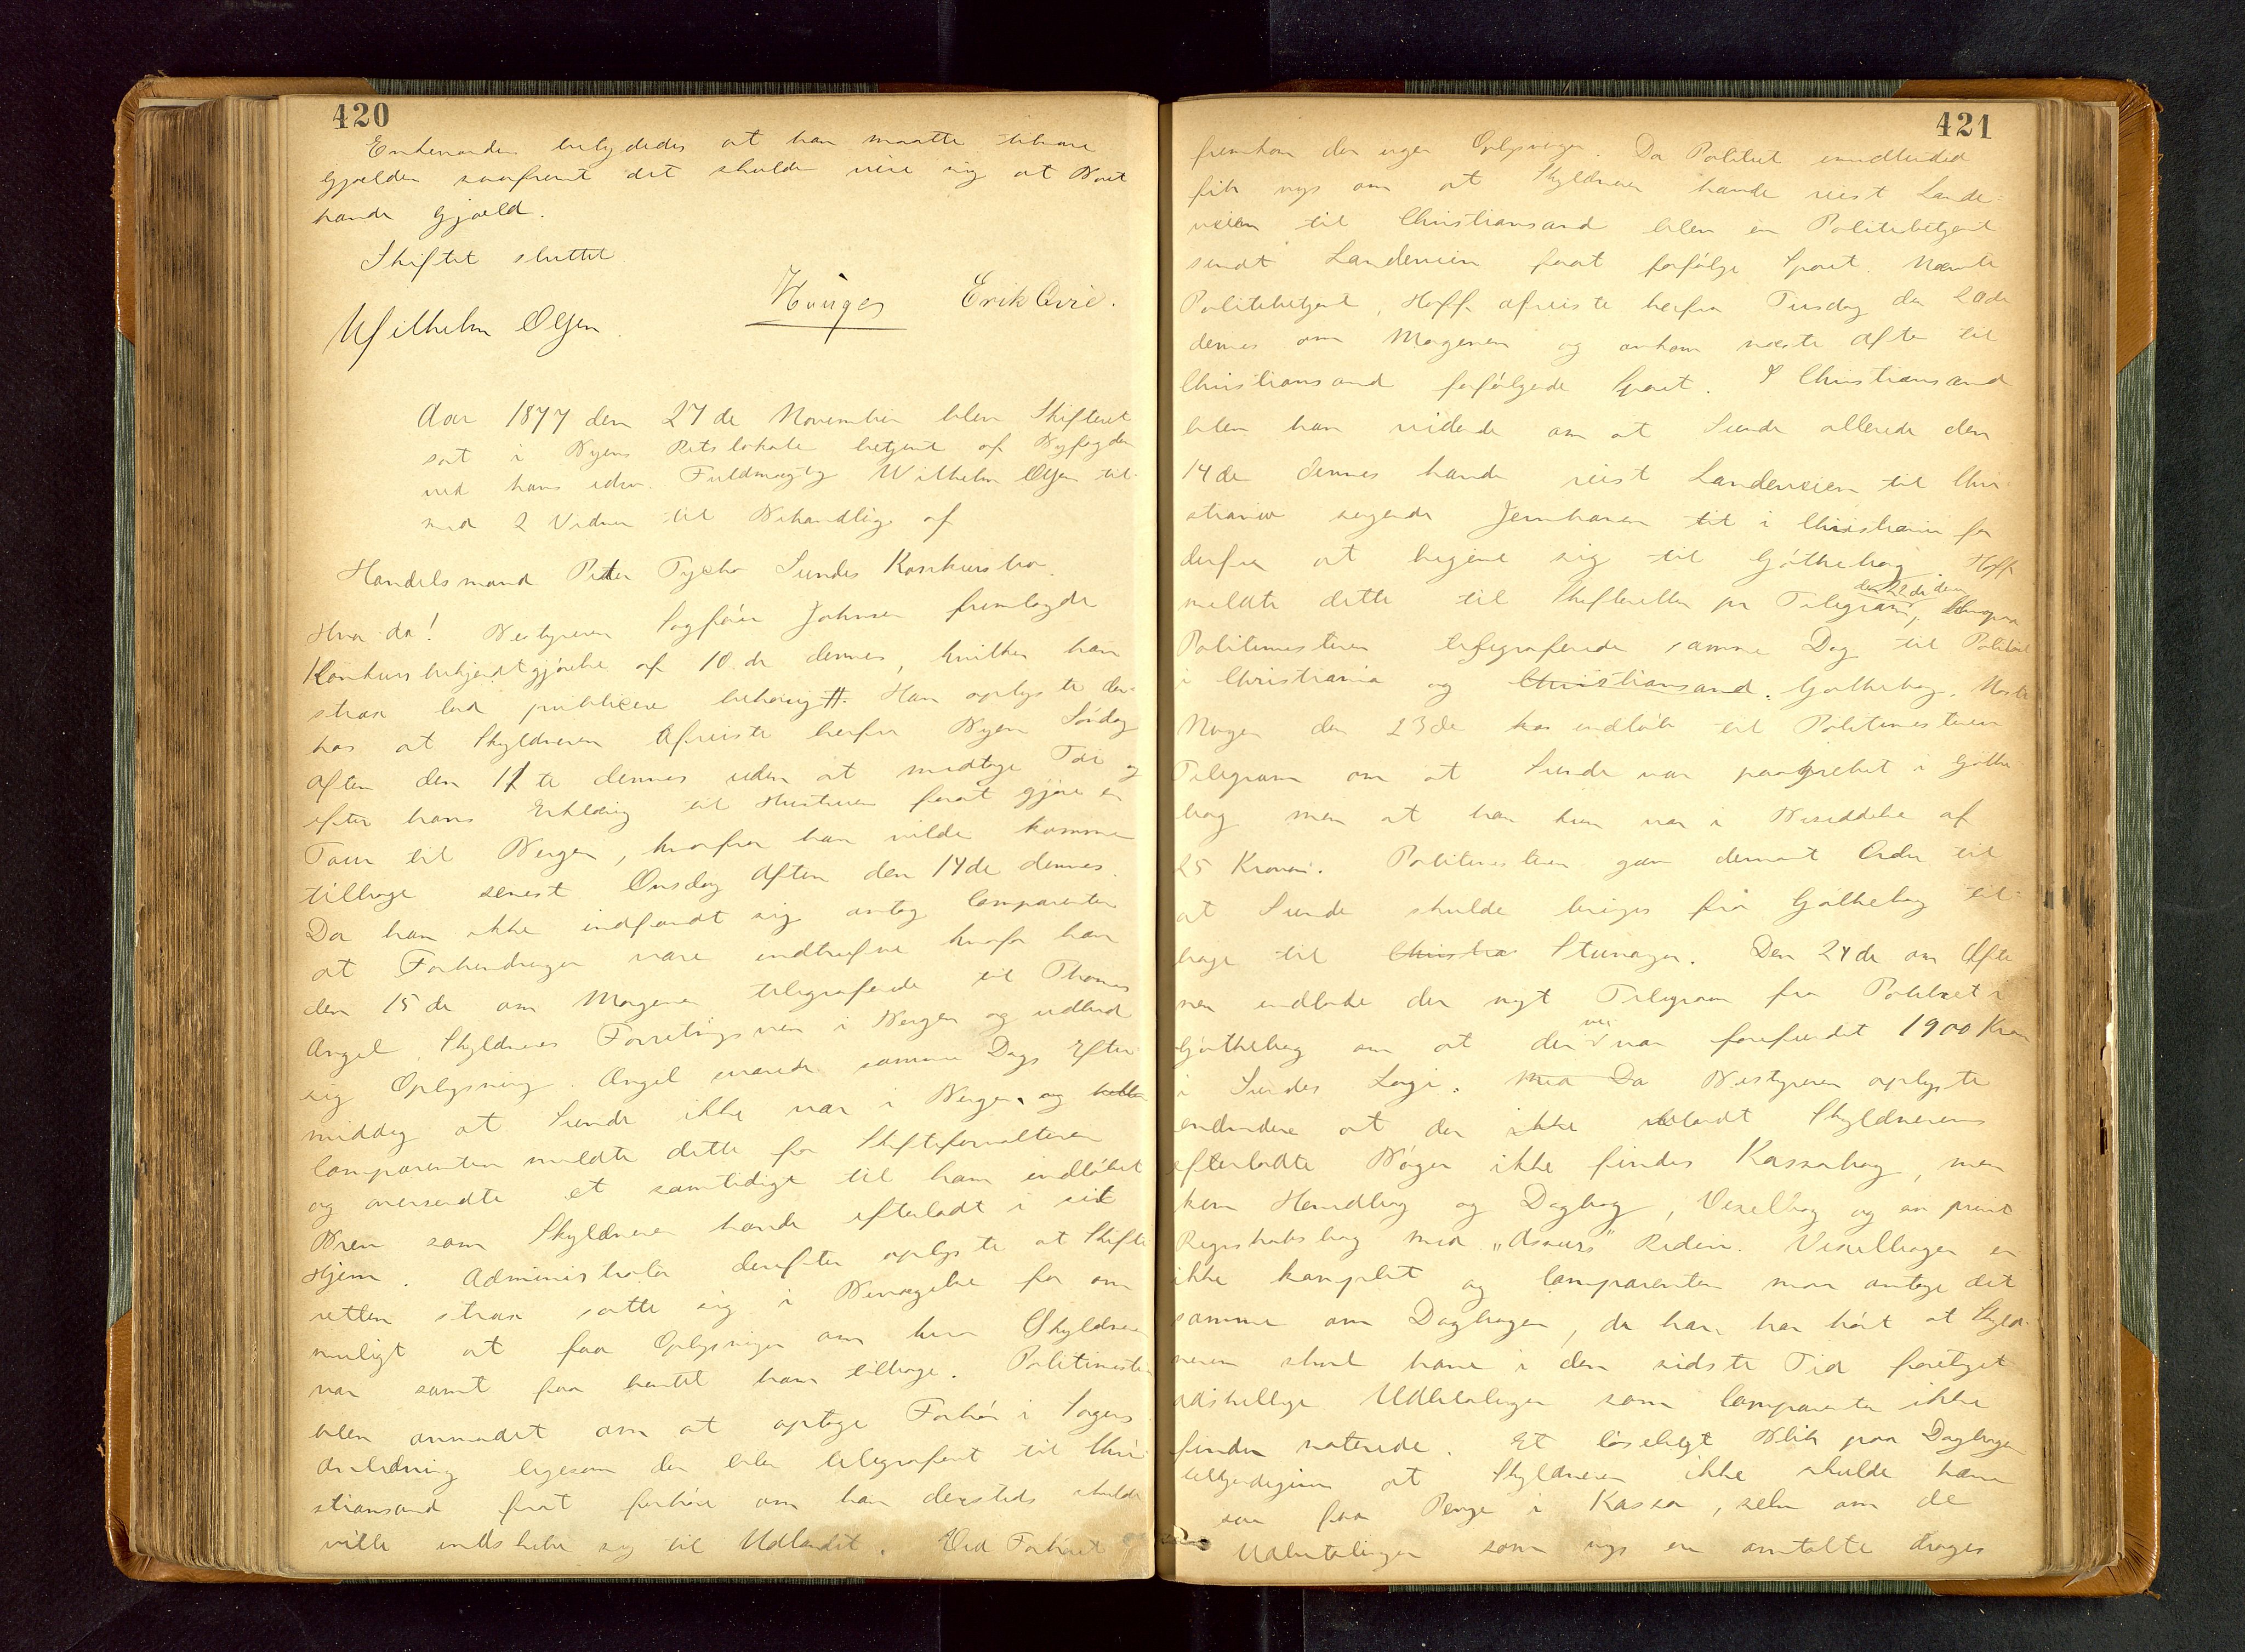 420
Enkemanden betydedes at han maatte tilsvare
Gjælden saafremt det skulde vise sig at Boet
havde Gjæld.
Skiftet sluttet.
Hauges Erik Orre.
Wilhelm Olsen
Aar 1877 den 27de November blev Skifteret
sat i Byens Retslokale betjent af Byfogden
ved hans edsv. Fuldmægtig Wilhelm Olsen til
med 2 Vidner til Behandling af
Handelsmand Peter Tycho Sundes Konkursbo.
Hvor da! Bestyreren Sagfører Johnsen fremlagde
Konkursbekjendtgjørelse af 10de dennes, hvilken han
strax lod publicere behørig #. Han oplyste der-
hos at Skyldneren afreiste herfra Byen Søndag
Aften den 11te dennes uden at medtage Tøi og
efter hans Erklæring til Hustruen forat gjøre en
Tour til Bergen, hvorfra han vilde komme
tilbage senest Onsdag Aften den 14de dennes.
Da han ikke indfandt sig antog Comparenten
at Forhindringer vare indtrufne hvorfor han
den 15de om Morgenen telegraferede til Thomas
Angel, Skyldneres Forretningsven i Bergen og udbad
sig Oplysning. Angel svarede samme Dags Efter
middag at Sunde ikke var i Bergen, og
Comparenten meldte dette for Skifteforvalteren
og oversendte et samtidigt til ham indløbet
Brev som Skyldneren havde efterladt i sit
Hjem. Administrator derefter oplyste at Skifte
retten strax satte sig i Bevægelse for om
muligt at faa Oplysninger om hvor Skyldneren
var samt faa hentet ham tilbage. Politimesteren
blev anmodet om at optage Forhør i Sagens
Anledning ligesom der blev telegraferet til Chri-
stiansand forat forhøre om han dersteds skulde
ville indskibe sig til Udlandet. Ved Forhøret
421
fremkom der ingen Oplysninger. Da Politiet imidlertid
fik nys om at Skyldneren havde reist Lande-
veien til Christiansand blev en Politibetjent
sendt Landeveien forat forfølge Sporet. Nævnte
Politibetjent, Hoff afreiste herfra Tirsdag den 20de
dennes om Morgenen og ankom næste Aften til
Christiansand forfølgende Sporet. I Christiansand
blev han vidende om at Sunde allerede den
14de dennes havde reist Landeveien til Chri
stiania søgende Jernbanen til i Christiania for
derfra at begive sig til Gøtheborg. Hoff
meldte dette til Skifteretten pr Telegram, den 22de dennes hvorpaa
Politimesteren telegraferede samme Dag til Politiet
i Christiania og Christiansand. Gøtheborg. Næste
Morgen den 23de kom indløb til Politimesteren
Telegram om at Sunde var paagrebet i Gøthe-
borg men at han kun var i Besiddelse af
25 Kroner. Politimesteren gav dernæst Ordre til
at Sunde skulde bringes fra Gøtheborg til-
bage til Christia Stavanger. Den 24de om Afte
nen indløb der nyt Telegram fra Politiet i
Gøtheborg om at der var forefundet 1900 Kron
i Sundes Logi. Med Da Bestyreren oplyste
endvidere at der ikke iblandt Skyldnerens
efterladte Bøger ikke findes Kassabog, men
kun Hovedbog og Dagbog, Vexelbog og en privat
Registratsbog med "Assurs" Rederi. Vexelbogen er
ikke komplet og Comparenten maa antage det
samme om Dagbogen, da han har hørt at Skyld-
neren skal have i den sidste Tid foretaget
adskillige Udbetalinger som Comparenten ikke
finder noterede. Et løseligt Blik paa Dagbogen
tilkjendegiver at Skyldneren ikke skulde have
saa faa Penge i Kassa, selv om de
Udbetalinger som nys er omtalte drages